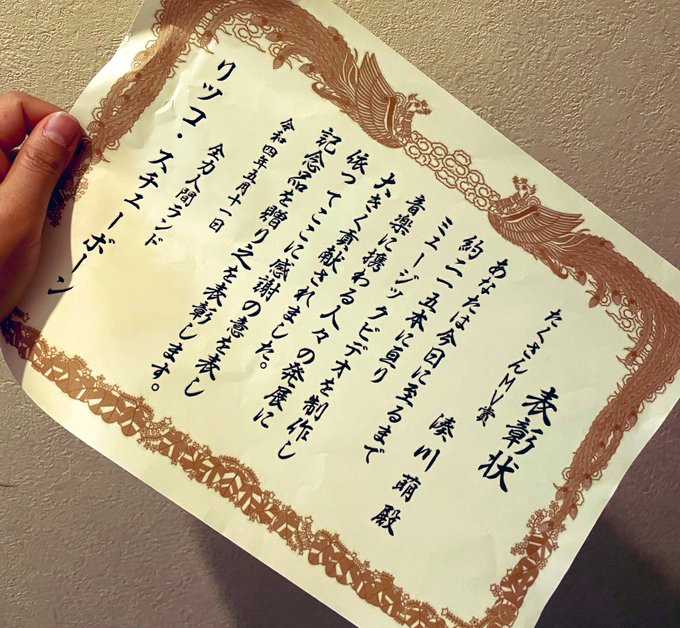 表彰状
たくさんMV賞
湊川 萌 殿
あなたは今日に至るまで
約二一五本に亘り
ミュージックビデオを制作し
音楽に携わる人々の発展に
大きく貢献されました。
依ってここに感謝の意を表し
記念品を贈り之を表彰します。
令和四年五月十一日
全力人間ランド
リツコ・スチューボーン